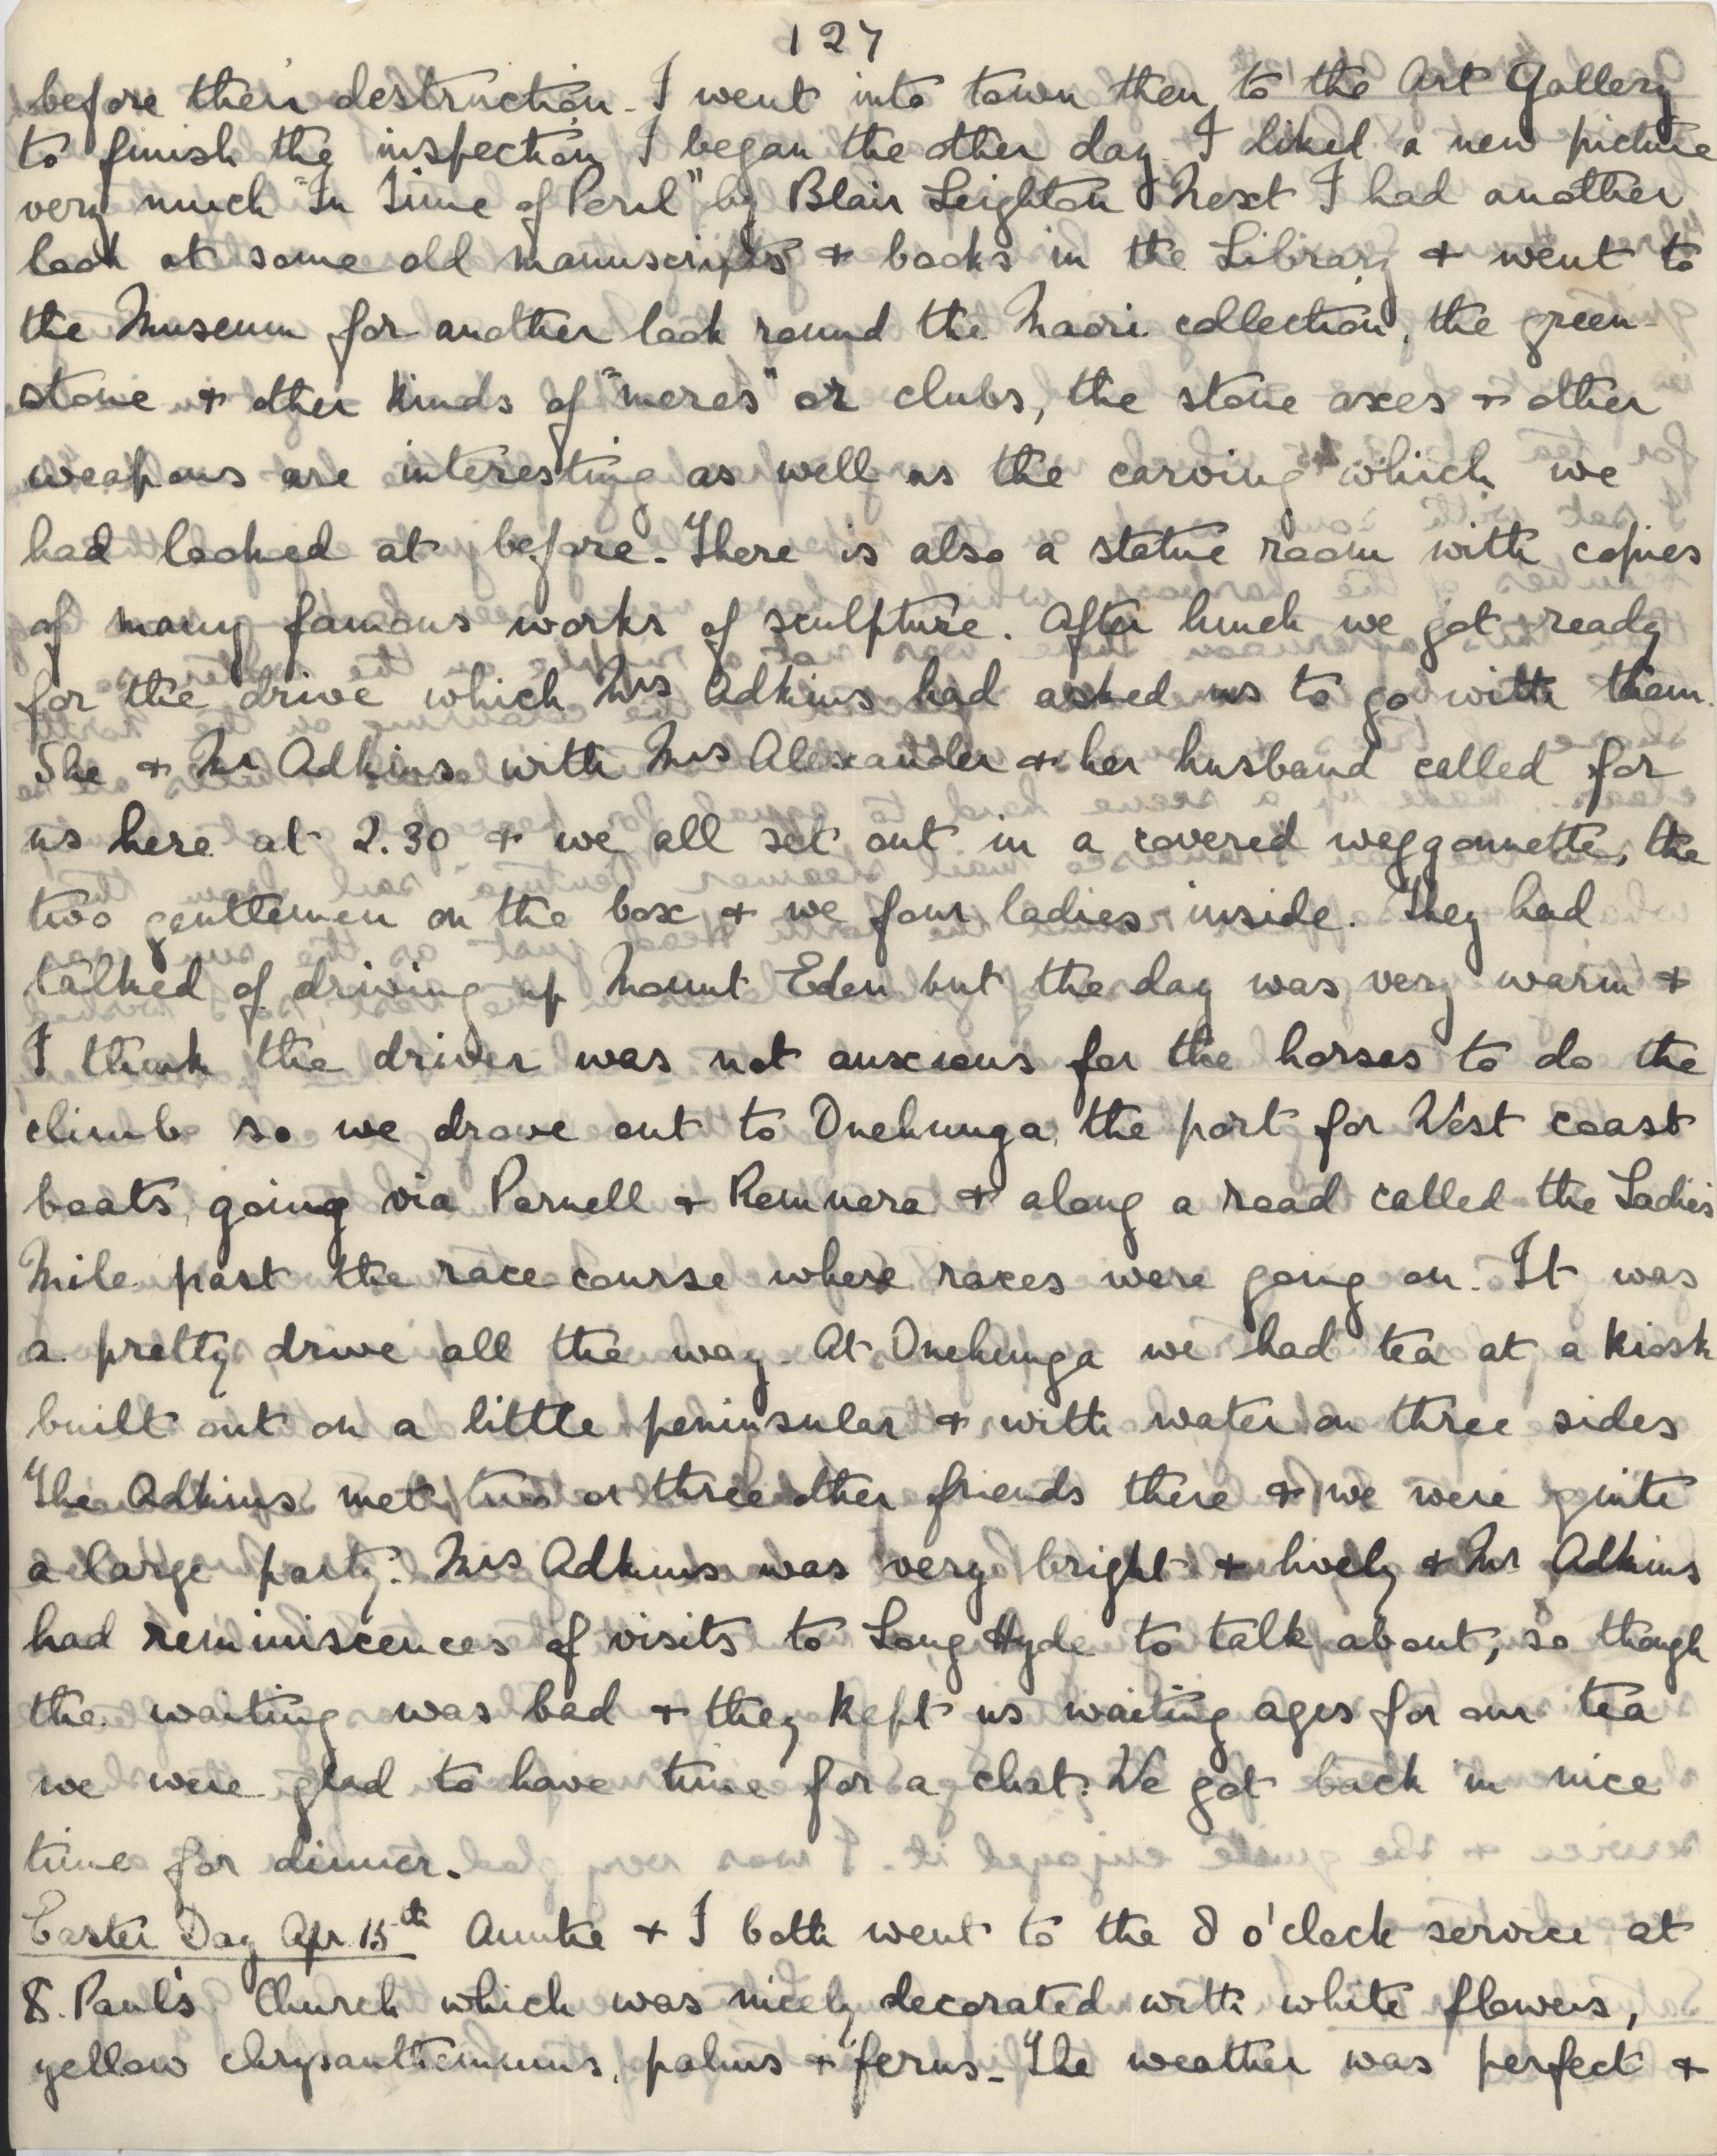 127
before their destruction. I went into town then, to the Art Gallery
to finish the inspection I began the other day. I liked a new picture
very much "In Time of Peril" by Blair Leighton Next I had another
look at some old manuscripts & books in the Library & went to
the Museum for another look round the Maori collection, the green-
stone & other kinds of "meres" or clubs, the stone axes & other
weapons are interesting as well as the carving which we
had looked at before. There is also a statue room with copies
of many famous works of sculpture. After lunch we got ready
for the drive which Mrs Adkins had asked us to go with them.
She & Mr Adkins with Mrs Alexander & her husband called for
us here at 2.30 & we all set out in a covered waggonnette, the
two gentlemen on the box & we four ladies inside. They had
talked of driving up Mount Eden but the day was very warm &
I think the driver was not anxious for the horses to do the
climb so we drove out to Onehunga, the port for West coast
boats, going via Parnell & Remuera & along a road called the Ladies
Mile past the race course where races were going on. It was
a pretty drive all the way. At Onehunga we had tea at a kiosk
built out on a little peninsular & with water on three sides
The Adkins met two or three other friends there & we were quite
a large party. Mrs Adkins was very bright & lively & Mr Adkins
had reminiscences of visits to Long Hyde to talk about, so though
the waiting was bad & they kept us waiting ages for our tea
we were glad to have time for a chat. We got back in nice
time for dinner.
Easter Day Apr. 15th Auntie & I both went to the 8 o'clock service at
S. Paul's Church which was nicely decorated with white flowers,
yellow chrysanthemums, palms & ferns. The weather was perfect &